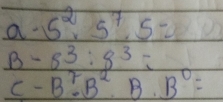 a - 5² . 5⁷ . 5 =
B - 8³ : 8³ =
C - B⁷ . B² . B . B⁰ =